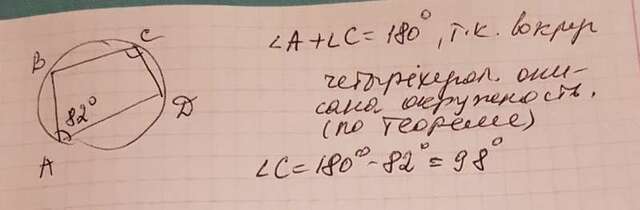 B
C
82°
D
A
∠A+∠C=180°, т.к. вокруг
четырёхугол. опи-
сана окружность.
(по теореме)
∠C=180°-82°=98°